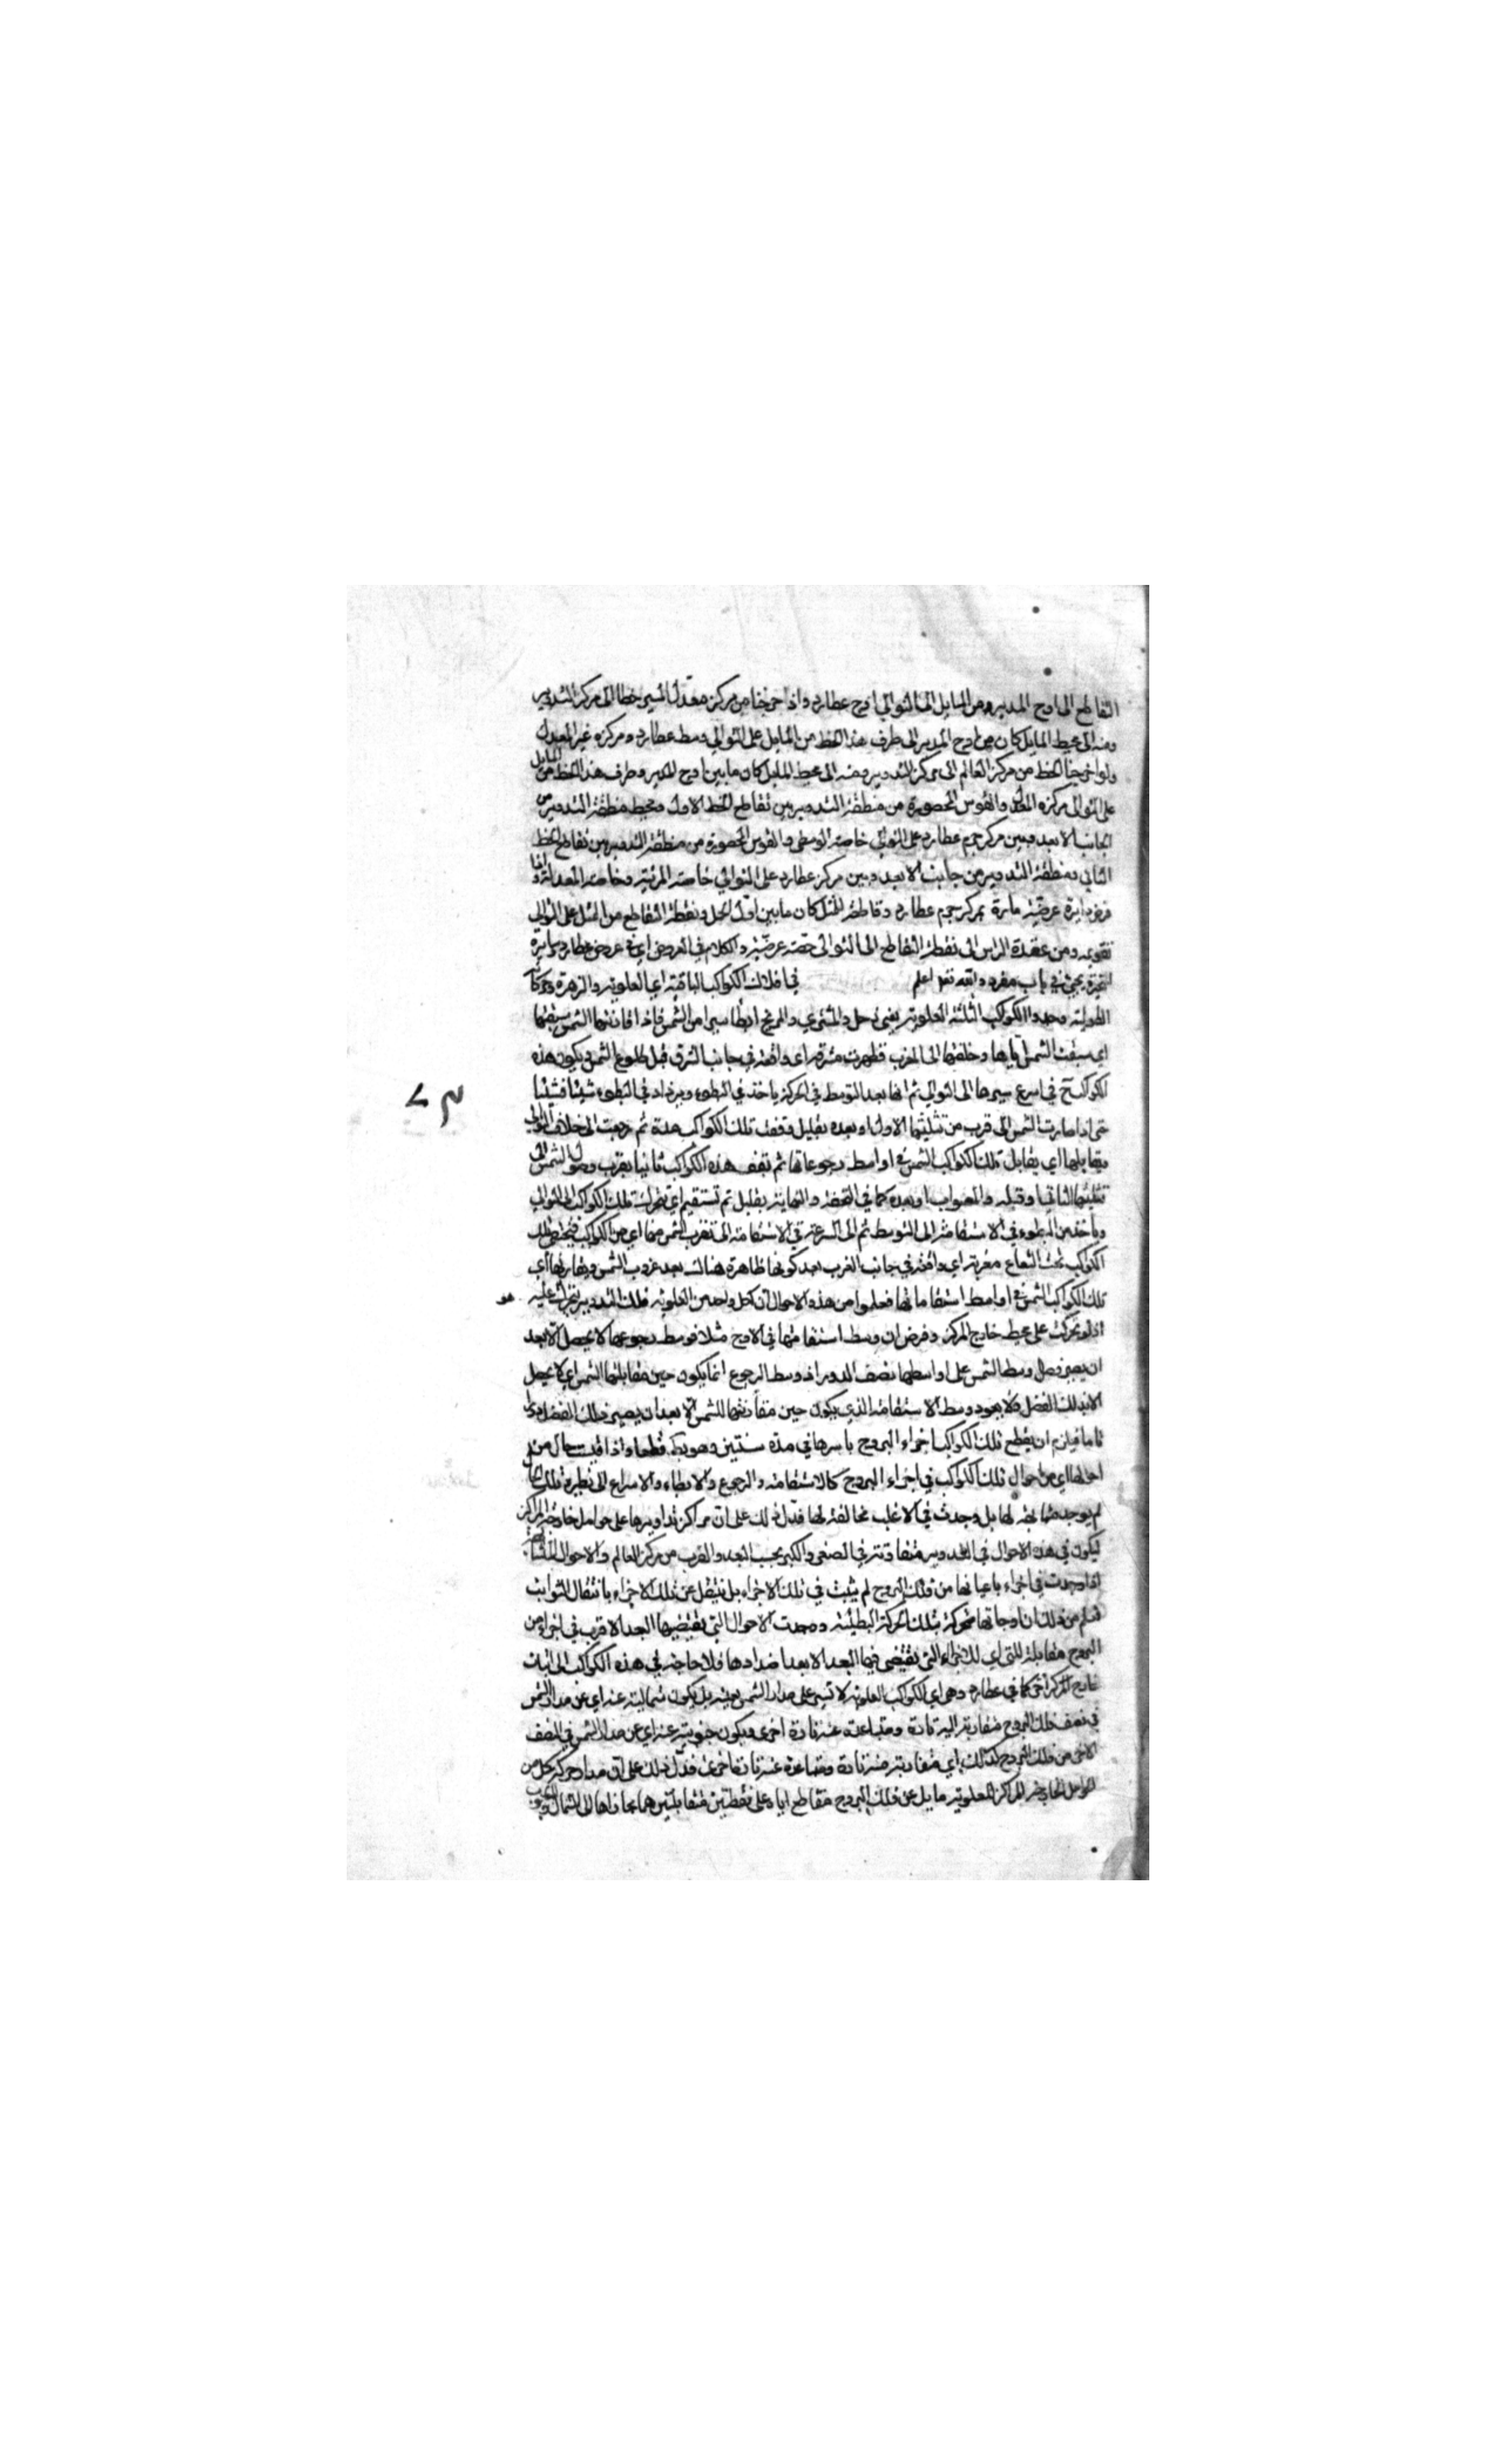 التقاطع الى اوج المدير ومن المايل الى التوالي اوج عطارد واذا اخرجنا من مركز معدل المسير خطا الى مركز التدوير
ومنه الى محيط المايل كان من اوج المدير الى طرف هذا الخط من المايل على التوالي وسط عطارد ومركزه غير المعدل
ولو اخرجنا الخط من مركز العالم الى مركز التدوير ومنه الى محيط المايل كان ما بين اوج المدير وطرف هذا الخط من المايل
على التوالي مركزه المعدل والقوس المحصورة من منطقة التدوير بين تقاطع الخط الاول ومحيط منطقة التدوير من
الجانب الابعد وبين مركز جرم عطارد على التوالي خاصته الوسطى والقوس المحصورة من منطقة التدوير بين تقاطع الخط
الثاني ومنطقة التدوير من جانب الابعد وبين مركز عطارد على التوالي خاصته المرئية وخاصته المعدلة واذا
فرض دايرة عرضية مارة بمركز جرم عطارد وقاطعة للممثل كان ما بين اول الحمل ونقطة التقاطع من الممثل على التوالي
تقويمه ومن عقدة الراس الى نقطة التقاطع الى التوالي حصته عرضية والكلام في العروض اي في عروض عطارد وسايرة
المتحيرة يجئ في باب مفرد والله تعالى اعلم في افلاك الكواكب الباقية اي العلوية والزهرة وحركاتها
الطولية وجدوا الكواكب الثلثة العلوية يعني زحل والمشتري والمريخ ابطأ سيرا من الشمس فاذا قارنتها الشمس سبقتها
اي سبقت الشمس اياها وخلفتها الى المغرب فظهرت مشرقة اي واقعة في جانب الشرق قبل طلوع الشمس ويكون هذه
الكواكب ح في اسرع سيرها الى التوالي ثم انها بعد التوسط في الحركة ياخذ في البطوء ويزداد في البطوء شيئا فشيئا
حتى اذا صارت الشمس الى قرب من تثليثها الاول او بعده بقليل وقفت تلك الكواكب مدة ثم رجعت الى خلاف التوالي
ويقابلها اي يقابل تلك الكواكب الشمس في اواسط رجوعاتها ثم تقف هذه الكواكب ثانيا بقرب وصول الشمس الى
تثليثها الثاني او قبله والصواب او بعده كما في التحفة والنهاية بقليل ثم تستقيم اي تتحرك تلك الكواكب الى التوالي
وياخذ من البطوء في الاستقامة الى التوسط ثم الى السرعة في الاستقامة الى تقرب الشمس منها اي من الكواكب فيختفي تلك
الكواكب تحت الشعاع مغربة اي واقعة في جانب الغرب بعد كونها ظاهرة هناك بعد غروب الشمس ويقارنها اي
تلك الكواكب الشمس في اواسط استقاماتها فعلموا من هذه الاحوال ان لكل واحد من العلوية فلك التدوير يتحرك عليه
اذ لو تحركت على محيط خارج المركز وفرض ان وسط استقامتها في الاوج مثلا فوسط رجوعها لا يحصل الا بعد
ان يصير فضل وسط الشمس على اواسطها نصف الدور اذ وسط الرجوع انما يكون حين مقابلتها الشمس اي لا يحصل
الا بذلك الفضل فلا يعود وسط الاستقامة الذي يكون حين مقارنتها للشمس الا بعد ان يصير ذلك الفضل دورا
تاما فيلزم ان يقطع تلك الكواكب اجزاء البروج باسرها في مدة سنتين وهو بط قطعا واذا قيست حال من
احوالها اي من احوال تلك الكواكب في اجزاء البروج كالاستقامة والرجوع والابطاء والاسراع الى نظيرة تلك الحال
لم يوجد مشابهة لها بل وجدت في الاغلب مخالفة لها فدل ذلك على ان مراكز تداويرها على حوامل خارجة المراكز
ليكون في هذه الاحوال في التدوير متفاوتة في الصغر والكبر بحسب البعد والقرب من مركز العالم والاحوال المتشابهة
اذا وجدت في اجزاء باعيانها من فلك البروج لم يثبت في تلك الاجزاء بل تنتقل عن تلك الاجزاء بانتقال الثوابت
فعلم من ذلك ان اوجاتها متحركة بتلك الحركة البطيئة ووجدت الاحوال التي يقتضيها البعد الاقرب في اجزاء من
البروج مقابلة للتي اي للاجزاء التي يقتضي فيها البعد الابعد اضدادها فلا حاجة في هذه الكواكب الى اثبات
خارج المركز اخر كما في عطارد وهي اي الكواكب العلوية لا تسير على مدار الشمس بعينه بل يكون شمالية عنه اي عن مدار الشمس
في نصف فلك البروج متقاربة اليه تارة ومتباعدة عنه تارة اخرى ويكون جنوبية عنه اي عن مدار الشمس في النصف
الاخر من فلك البروج كذلك اي متقاربة منه تارة ومتباعدة عنه تارة اخرى فدل ذلك على ان مدار حركة كل من
الحوامل الخارجة المراكز للعلوية مايل عن فلك البروج مقاطع اياه على نقطتين متقابلتين هما مجازاها الى الشمال والجنوب